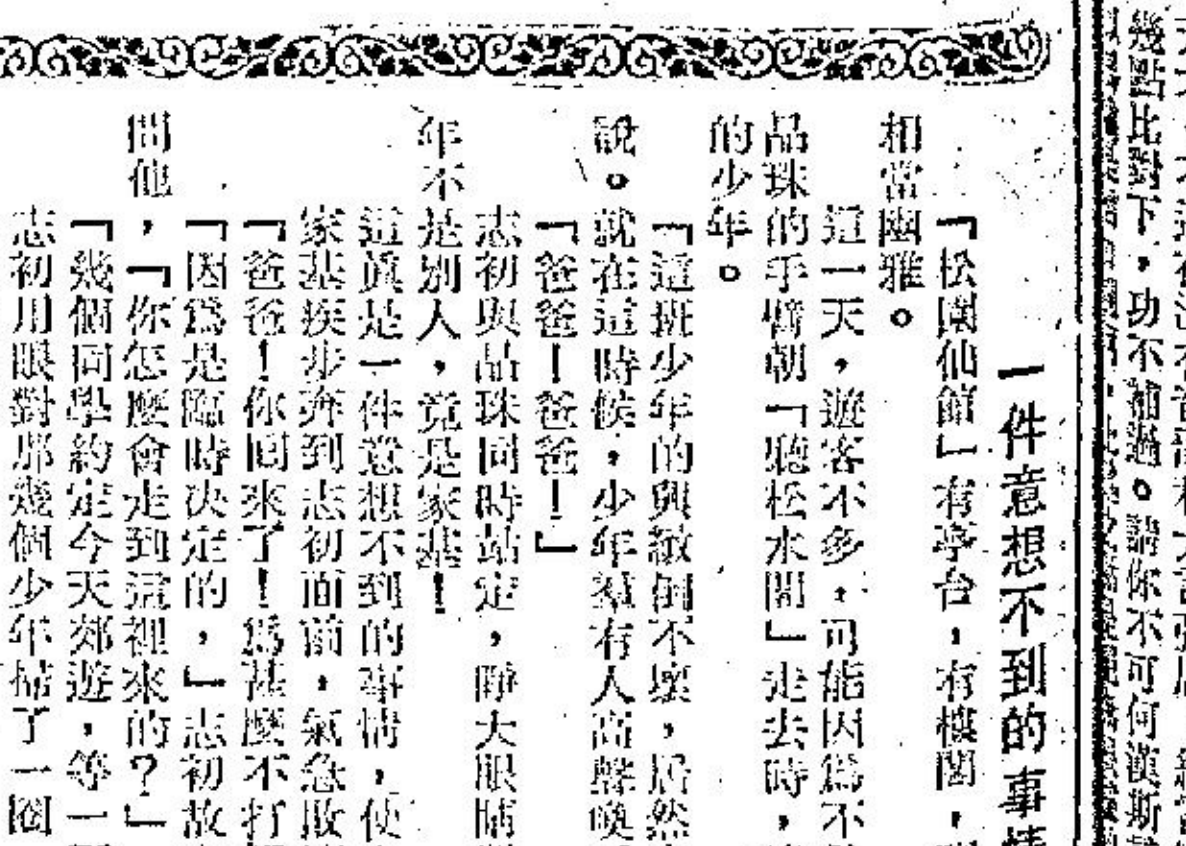 幾點比對下，功不補過。請你不可何漢斯
一件意想不到的事情
「松園仙館」有亭台，有樓閣，
相當幽雅。
這一天，遊客不多，可能因爲不
品珠的手臂朝「聽松水閣」走去時，
的少年。
「這班少年的興緻倒不壞，居然
說。就在這時候，少年羣有人高聲喚
「爸爸！爸爸！」
志初與品珠同時站定，睜大眼睛
年不是別人，竟是家基！
這眞是一件意想不到的事情，使
家基疾步奔到志初面前，氣急敗
「爸爸！你回來了！爲甚麼不打
「因爲是臨時决定的，」志初故
問他，「你怎麼會走到這裡來的？」
「幾個同學約定今天郊遊，等一
志初用眼對那幾個少年掃了一圈